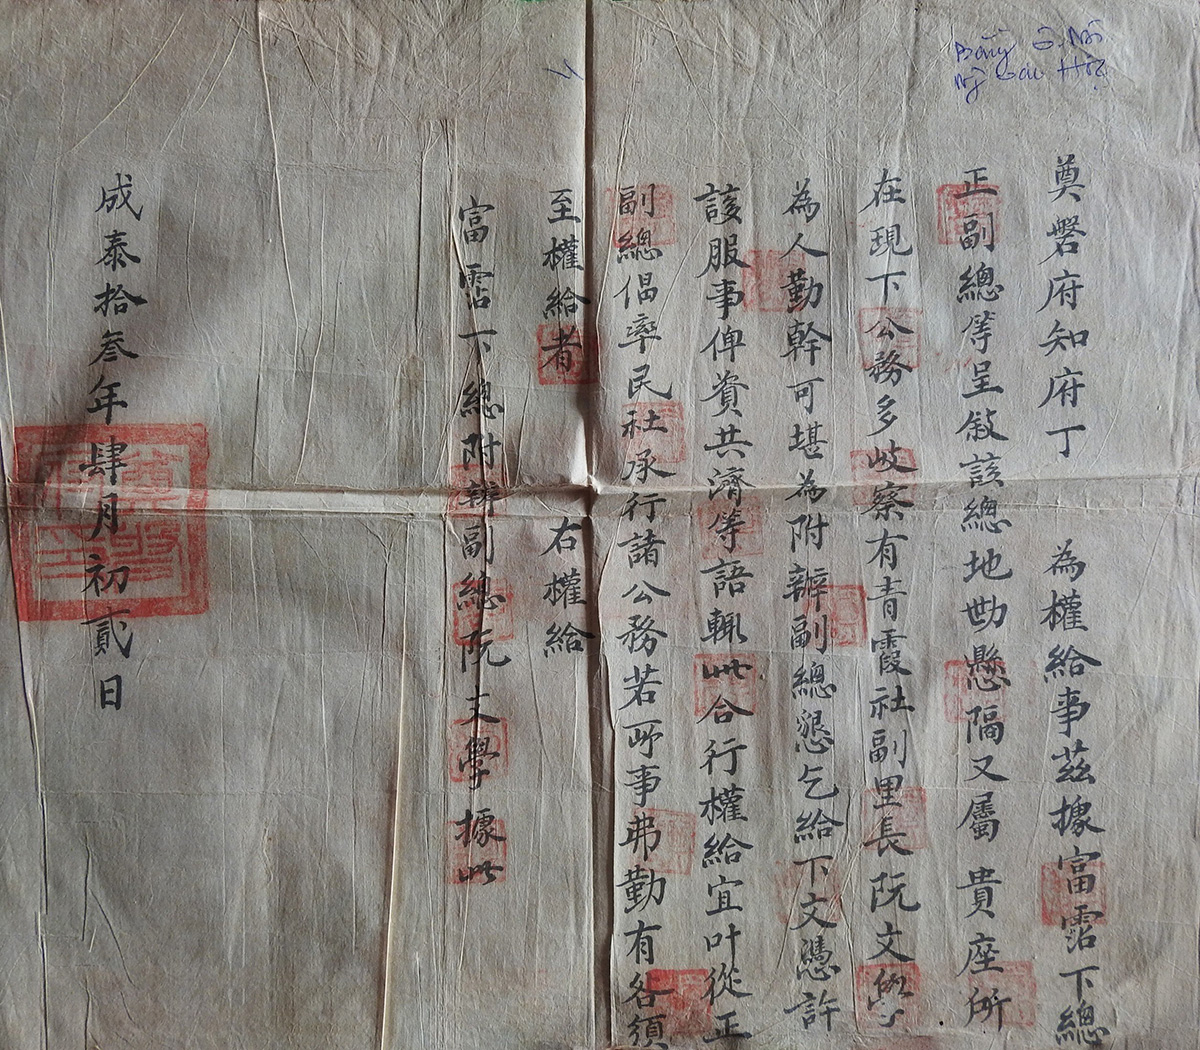 奠磐府知府丁 為權給事茲據富霑下總
正副總等呈敍該總地勢懸隔又屬 貴座所
在現下公務多岐察有青霞社副里長阮文學
為人勤幹可堪為附辦副總懇乞給下文憑許
該服事俾資共濟等語輒此合行權給宜叶從正
副總倡率民社承行諸公務若所事弗勤有咎須
至權給者 右權給
富霑下總附辦副總阮文學據此
成泰拾叁年肆月初貳日